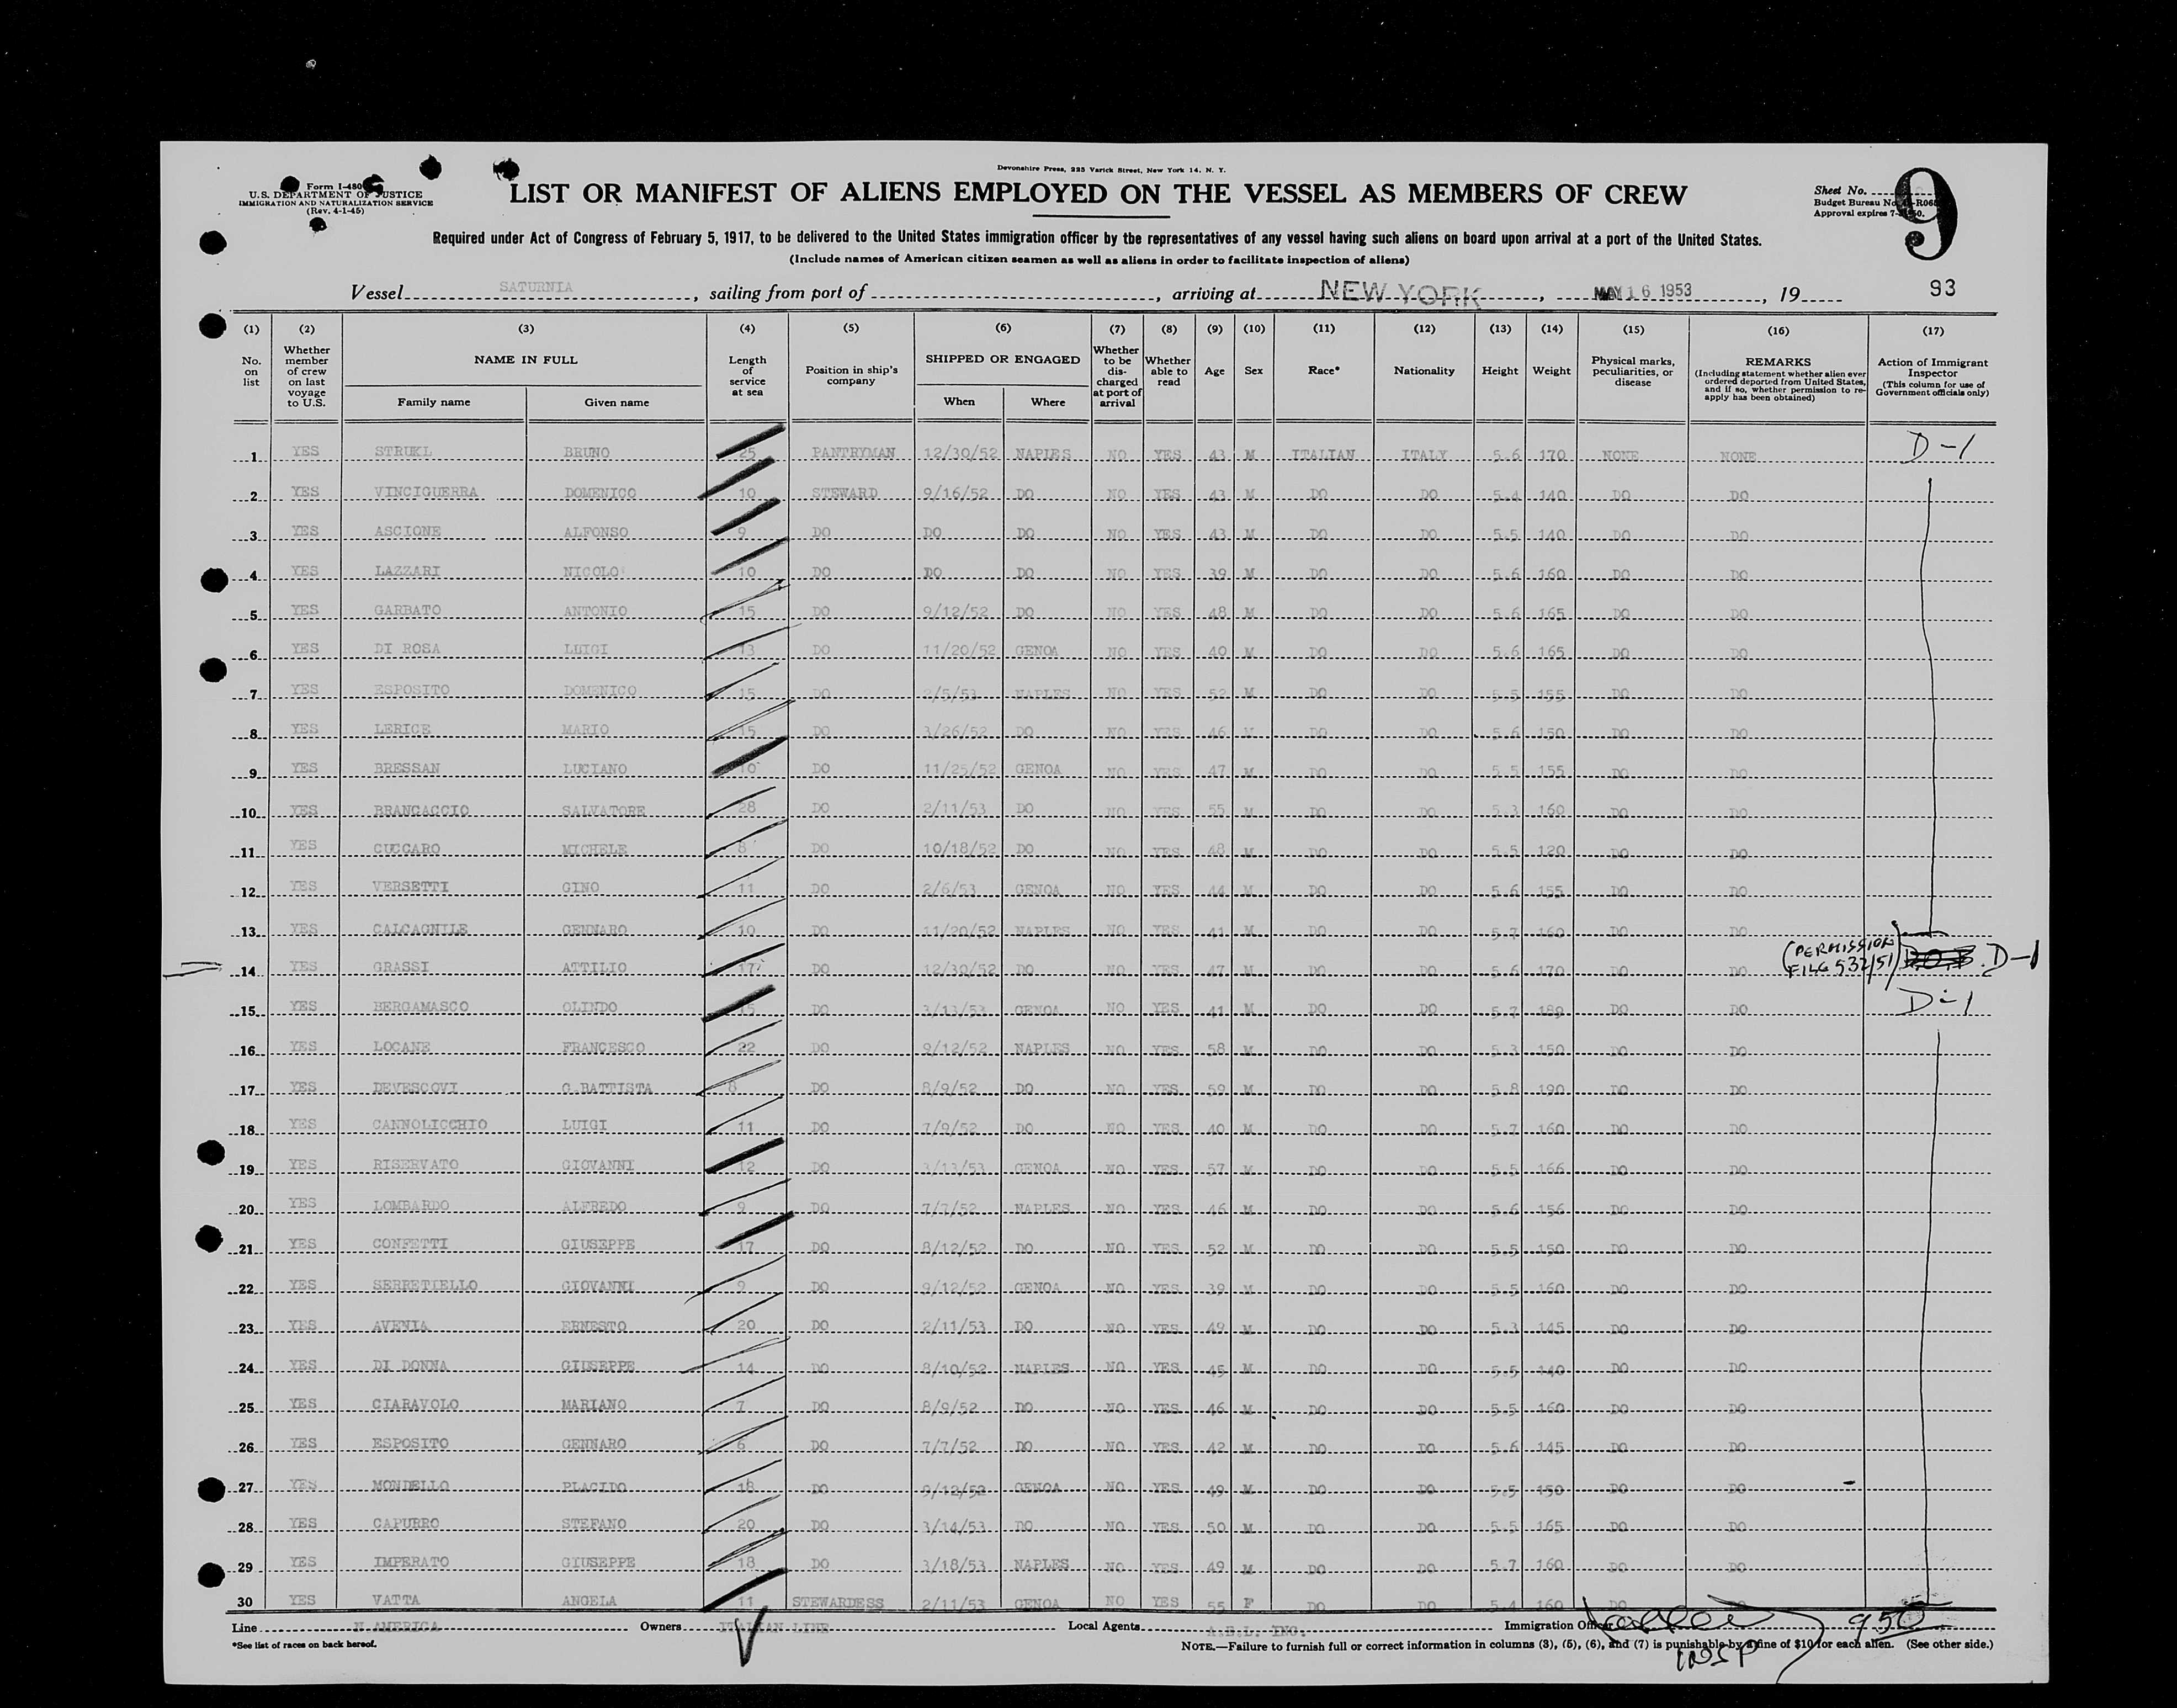 Devonshire Press, 225 Varick Street, New York 14, N. Y.
Form I-480
U.S. DEPARTMENT OF JUSTICE
IMMIGRATION AND NATURALIZATION SERVICE
(Rev. 4-1-45)
LIST OR MANIFEST OF ALIENS EMPLOYED ON THE VESSEL AS MEMBERS OF CREW
Sheet No. 9
Budget Bureau No.
Approval expires
Required under Act of Congress of February 5, 1917, to be delivered to the United States immigration officer by the representatives of any vessel having such aliens on board upon arrival at a port of the United States.
(Include names of American citizen seamen as well as aliens in order to facilitate inspection of aliens)
Vessel SATURNIA, sailing from port of , arriving at NEW YORK, MAY 16 1953, 19 93
(1) (2) (3) (4) (5) (6) (7) (8) (9) (10) (11) (12) (13) (14) (15) (16) (17)
No. on list
Whether member of crew on last voyage to U.S.
NAME IN FULL
Family name Given name
Length of service at sea
Position in ship's company
SHIPPED OR ENGAGED
When Where
Whether to be discharged at port of arrival
Whether able to read
Age
Sex
Race*
Nationality
Height
Weight
Physical marks, peculiarities, or disease
REMARKS
(Including statement whether alien ever ordered deported from United States, and if so, whether permission to re-apply has been obtained)
Action of Immigrant Inspector
(This column for use of Government officials only)
1 YES STRUKL BRUNO 25 PANTRYMAN 12/30/52 NAPLES NO YES 43 M ITALIAN ITALY 5.6 170 NONE NONE D-1
2 YES VINCIGUERRA DOMENICO 10 STEWARD 9/16/52 DO NO YES 43 M DO DO 5.4 140 DO DO
3 YES ASCIONE ALFONSO 9 DO DO DO NO YES 43 M DO DO 5.5 140 DO DO
4 YES LAZZARI NICOLO 10 DO DO DO NO YES 39 M DO DO 5.6 160 DO DO
5 YES GARBATO ANTONIO 15 DO 9/12/52 DO NO YES 48 M DO DO 5.6 165 DO DO
6 YES DI ROSA LUIGI 13 DO 11/20/52 GENOA NO YES 40 M DO DO 5.6 165 DO DO
7 YES ESPOSITO DOMENICO 15 DO 2/5/53 NAPLES NO YES 52 M DO DO 5.5 155 DO DO
8 YES LERICE MARIO 15 DO 3/26/52 DO NO YES 46 M DO DO 5.6 150 DO DO
9 YES BRESSAN LUCIANO 10 DO 11/25/52 GENOA NO YES 47 M DO DO 5.5 155 DO DO
10 YES BRANCACCIO SALVATORE 28 DO 2/11/53 DO NO YES 55 M DO DO 5.3 160 DO DO
11 YES CUCCARO MICHELE 8 DO 10/18/52 DO NO YES 48 M DO DO 5.5 120 DO DO
12 YES VERSETTI GINO 11 DO 2/6/53 GENOA NO YES 44 M DO DO 5.6 155 DO DO
13 YES CALCAGNILE GENNARO 10 DO 11/20/52 NAPLES NO YES 41 M DO DO 5.7 160 DO DO
14 YES GRASSI ATTILIO 17 DO 12/30/52 DO NO YES 47 M DO DO 5.6 170 DO DO (PERMISSION FILE 532/51) D-1
15 YES BERGAMASCO OLINDO 15 DO 3/13/53 GENOA NO YES 41 M DO DO 5.7 189 DO DO D-1
16 YES LOCANE FRANCESCO 22 DO 9/12/52 NAPLES NO YES 58 M DO DO 5.3 150 DO DO
17 YES DEVESCOVI G.BATTISTA 8 DO 8/9/52 DO NO YES 59 M DO DO 5.8 190 DO DO
18 YES CANNOLICCHIO LUIGI 11 DO 7/9/52 DO NO YES 40 M DO DO 5.7 160 DO DO
19 YES RISERVATO GIOVANNI 12 DO 3/13/53 GENOA NO YES 57 M DO DO 5.5 166 DO DO
20 YES LOMBARDO ALFREDO 9 DO 7/7/52 NAPLES NO YES 46 M DO DO 5.6 156 DO DO
21 YES CONFETTI GIUSEPPE 17 DO 8/12/52 DO NO YES 52 M DO DO 5.5 150 DO DO
22 YES SERRETIELLO GIOVANNI 9 DO 9/12/52 GENOA NO YES 39 M DO DO 5.5 160 DO DO
23 YES AVENIA ERNESTO 20 DO 2/11/53 DO NO YES 49 M DO DO 5.3 145 DO DO
24 YES DI DONNA GIUSEPPE 14 DO 8/10/52 NAPLES NO YES 45 M DO DO 5.5 140 DO DO
25 YES CIARAVOLO MARIANO 7 DO 8/9/52 DO NO YES 46 M DO DO 5.5 160 DO DO
26 YES ESPOSITO GENNARO 6 DO 7/7/52 DO NO YES 42 M DO DO 5.6 145 DO DO
27 YES MONDELLO PLACIDO 18 DO 9/12/52 GENOA NO YES 49 M DO DO 5.5 150 DO DO
28 YES CAPURRO STEFANO 20 DO 3/14/53 DO NO YES 50 M DO DO 5.5 165 DO DO
29 YES IMPERATO GIUSEPPE 18 DO 3/18/53 NAPLES NO YES 49 M DO DO 5.7 160 DO DO
30 YES VATTA ANGELA 11 STEWARDESS 2/11/53 GENOA NO YES 55 F DO DO 5.4 160 DO DO
Line N.AMERICA Owners ITALIAN LINE Local Agents Immigration Officer 950
*See list of races on back hereof.
NOTE.—Failure to furnish full or correct information in columns (3), (5), (6), and (7) is punishable by a fine of $10 for each alien. (See other side.)
INSP